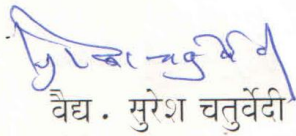 वैद्य . सुरेश चतुर्वेदी